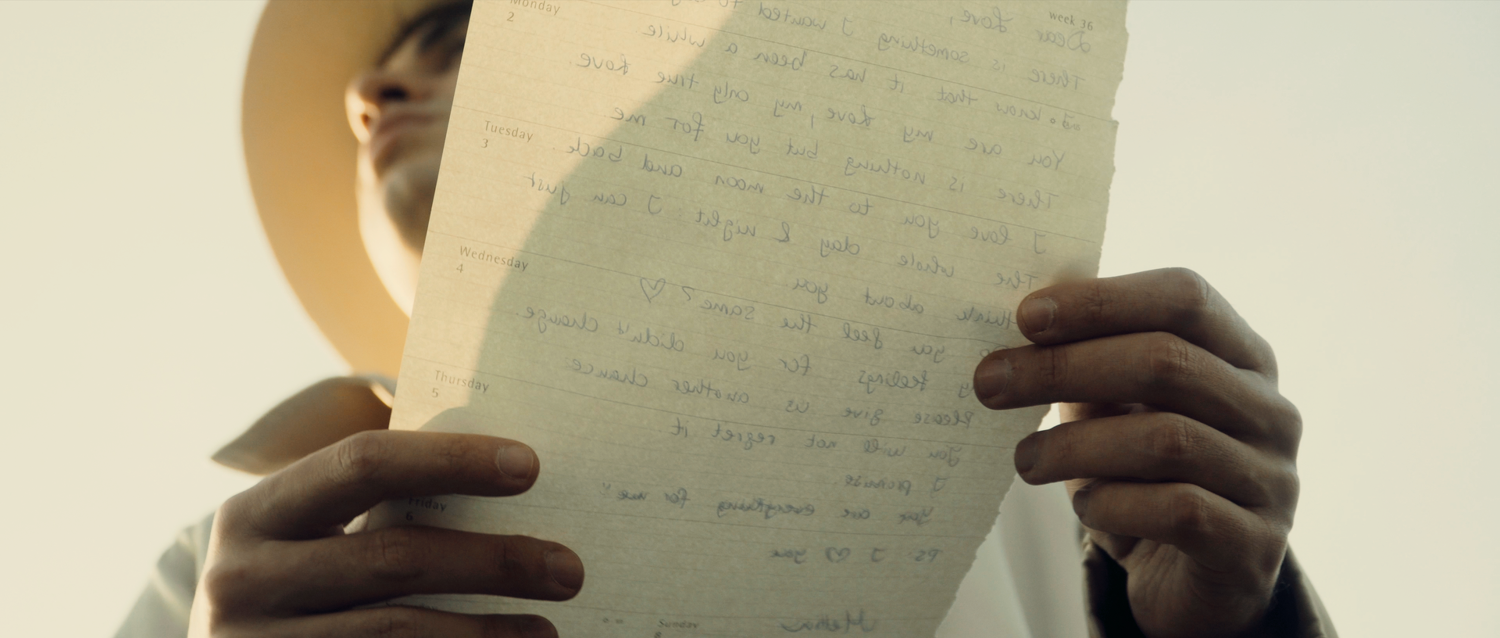 week 36
Monday
2
Tuesday
3
Wednesday
4
Thursday
5
Friday
6
Sunday
8
Dear Love,
There is something I wanted to
know that it has been a while
You are my Love, my only true Love.
There is nothing but you for me
I love you to the moon and back.
The whole day & night I can just
think about you
you feel the same? ♡
feelings for you didn't change.
Please give us another chance
You will not regret it
I promise.
You are everything for me"
PS I ♡ you